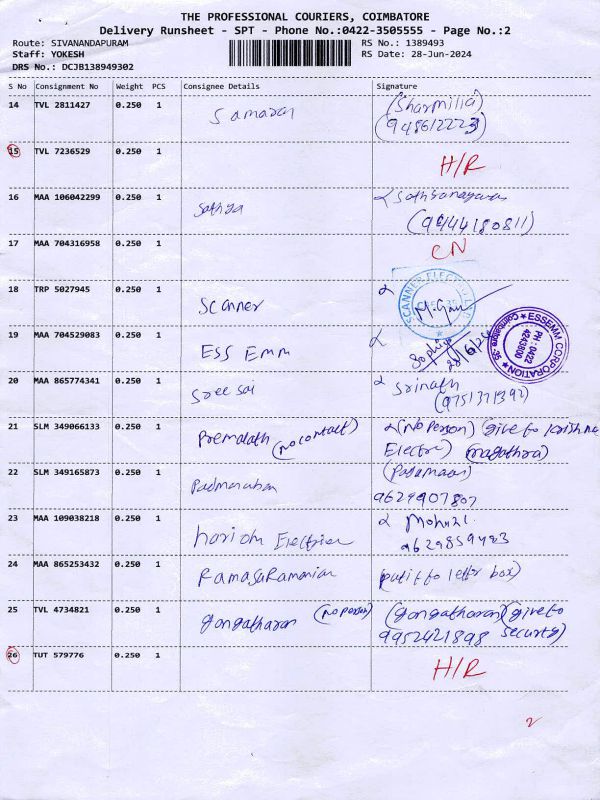 THE PROFESSIONAL COURIERS, COIMBATORE
Delivery Runsheet - SPT - Phone No.:0422-3505555 - Page No.:2
Route: SIVANANDAPURAM RS No.: 1389493
Staff: YOKESH RS Date: 28-Jun-2024
DRS No.: DCJB138949302
S No Consignment No Weight PCS Consignee Details Signature
14 TVL 2811427 0.250 1 Samaran (Sharmilia)
15 TVL 7236529 0.250 1 H/R
16 MAA 106042299 0.250 1 Sathya
(9944180811)
17 MAA 704316958 0.250 1 CN
18 TRP 5027945 0.250 1 Scanner
SCANNER
19 MAA 704529083 0.250 1 ESS Emm
Sophiya 28/6/24
ESSEMM CORPORATION
PH: 0422
4243800
20 MAA 865774341 0.250 1 Sree Sai Srinath
(9751371392)
21 SLM 349066133 0.250 1 Premalath (no contact) (No Person) give to Krishna
Electric)
22 SLM 349165873 0.250 1
9629907807
23 MAA 109038218 0.250 1
9629859483
24 MAA 865253432 0.250 1 Ramasaramanian (put it to letter box)
25 TVL 4734821 0.250 1 gangatharan (no person) (gangatharan) (give to
9952421898 security)
26 TUT 579776 0.250 1 H/R
2